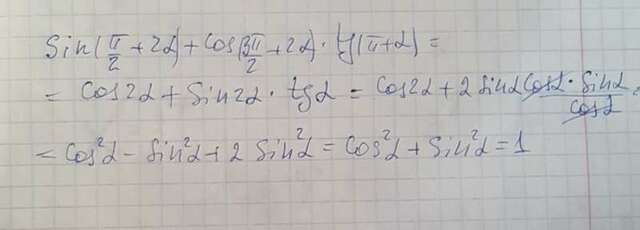 Sin(π/2 + 2α) + Cos(3π/2 + 2α) · tg(π + α) =
= Cos2α + Sin2α · tgα = Cos2α + 2 Sinα Cosα · Sinα/Cosα =
= Cos²α - Sin²α + 2 Sin²α = Cos²α + Sin²α = 1